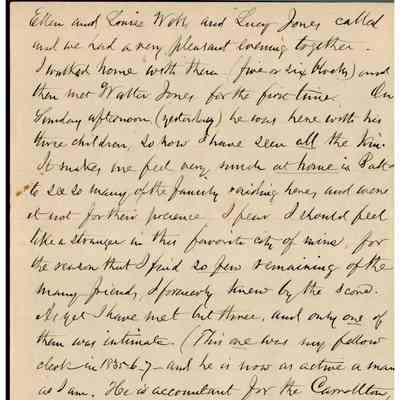 Ellen and Louise Webb and Lucy Jones called
and we had a very pleasant evening together.
I walked home with them (five or six blocks) and
then met Walter Jones for the first time. On
Sunday afternoon (yesterday) he was here with his
three children, so now I have seen all the kin.
It makes me feel very much at home in Balt-
to see so many of the family residing here, and were
it not for their presence I fear I should feel
like a stranger in this favorite city of mine, for
the reason that I find so few remaining of the
many friends, I formerly knew by the score.
As yet I have met but three, and only one of
them was intimate. (This one was my fellow
clerk in 1835-6-7 - and he is now as active a man
as I am. He is accountant for the Carrollton,